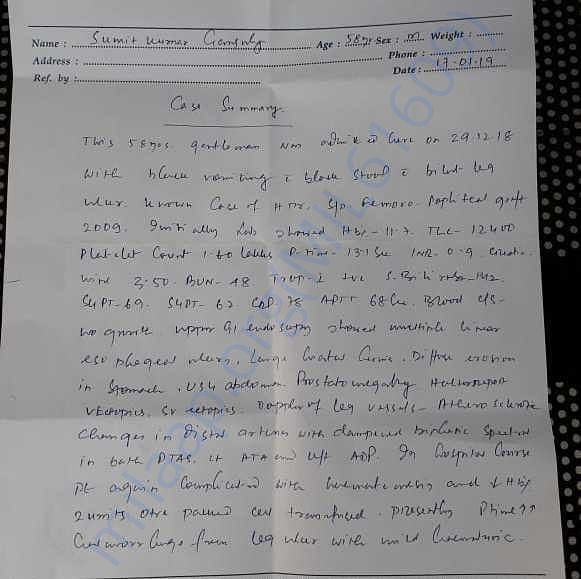 Name : Sumit Kumar Age : 58 yr Sex : M Weight :
Address : Phone :
Ref. by : Date : 17-01-19
Case Summary
This 58 yrs. gentleman was admitted here on 29.12.18
with black vomiting c black stool c bilat leg
ulcer. Known Case of HTN. S/p. Femoro-Popliteal graft
2009. Initially Lab showed Hb- 11.7. TLC- 12400
Platelet Count 1.60 lakhs P-time- 13.1 Sec INR- 0.9.
3.50. BUN- 48. Trop-I +ve S.
SGPT-69. SGPT- 62 CRP 78 APTT 68 Sec. Blood c/s-
no growth. Upper GI endoscopy showed multiple linear
esophageal ulcers. Large Diffuse erosion
in Stomach. USG abdomen. Prostatomegaly Holter report
V ectopics. SV ectopics. Doppler of leg vessels- Atherosclerotic
Changes in distal arteries with dampened biphasic Spectral
in both PTAS, ATA and ADP. In Hospital Course
Pt again Complicated with and
2 units of packed cell transfused. Presently
from leg ulcer with mild
milaap.org(MIL616609)